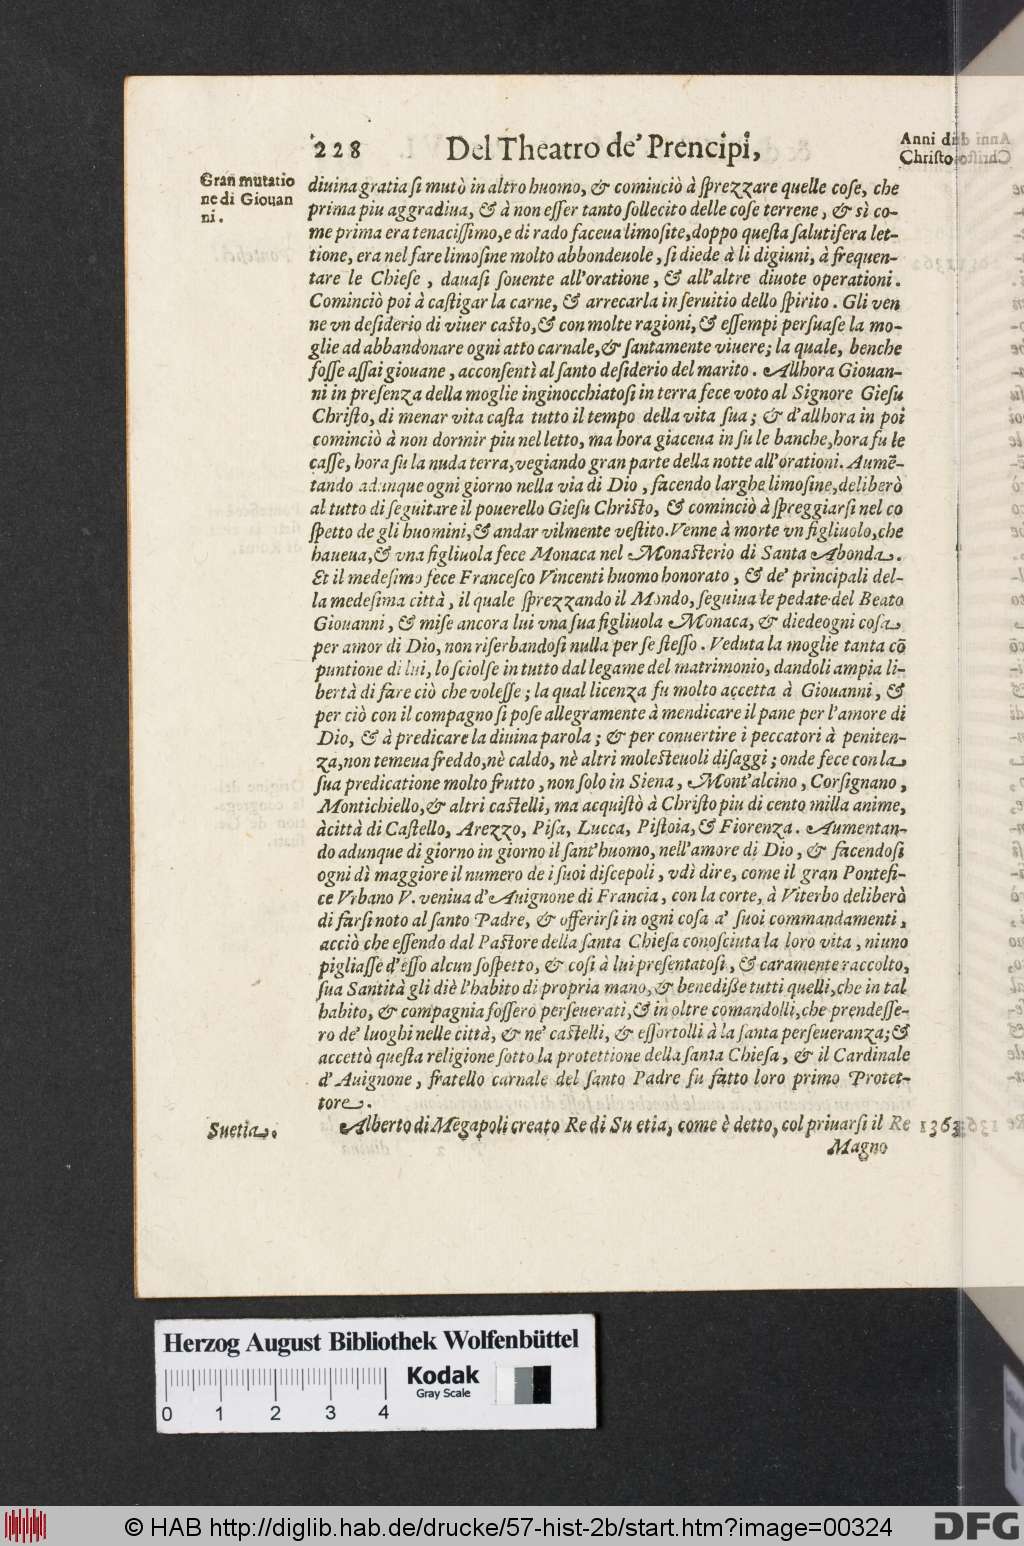 228 Del Theatro de' Prencipi,
Anni di
Christo
Gran mutatio
ne di Giouan
ni.
diuina gratia ſi mutò in altro huomo, & cominciò à ſprezzare quelle coſe, che
prima piu aggradiua, & à non eſſer tanto ſollecito delle coſe terrene, & sì co-
me prima era tenaciſſimo, e di rado faceua limoſite, doppo queſta ſalutifera let-
tione, era nel fare limoſine molto abbondeuole, ſi diede à li digiuni, à frequen-
tare le Chieſe, dauaſi ſouente all'oratione, & all'altre diuote operationi.
Cominciò poi à caſtigar la carne, & arrecarla in ſeruitio dello ſpirito. Gli ven
ne vn deſiderio di viuer caſto, & con molte ragioni, & eſſempi perſuaſe la mo-
glie ad abbandonare ogni atto carnale, & ſantamente viuere; la quale, benche
foſſe aſſai giouane, acconſentì al ſanto deſiderio del marito. Allhora Giouan-
ni in preſenza della moglie inginocchiatoſi in terra fece voto al Signore Gieſu
Chriſto, di menar vita caſta tutto il tempo della vita ſua; & d'allhora in poi
cominciò à non dormir piu nel letto, ma hora giaceua in ſu le banche, hora ſu le
caſſe, hora ſu la nuda terra, vegiando gran parte della notte all'orationi. Aumẽ-
tando adunque ogni giorno nella via di Dio, facendo larghe limoſine, deliberò
al tutto di ſeguitare il pouerello Gieſu Chriſto, & cominciò à ſpreggiarſi nel co
ſpetto de gli huomini, & andar vilmente veſtito. Venne à morte vn figliuolo, che
haueua, & vna figliuola fece Monaca nel Monaſterio di Santa Abonda.
Et il medeſimo fece Franceſco Vincenti huomo honorato, & de' principali del-
la medeſima città, il quale ſprezzando il Mondo, ſeguiua le pedate del Beato
Giouanni, & miſe ancora lui vna ſua figliuola Monaca, & diede ogni coſa
per amor di Dio, non riſerbandoſi nulla per ſe ſteſſo. Veduta la moglie tanta cõ
puntione di lui, lo ſciolſe in tutto dal legame del matrimonio, dandoli ampia li-
bertà di fare ciò che voleſſe; la qual licenza fu molto accetta à Giouanni, &
per ciò con il compagno ſi poſe allegramente à mendicare il pane per l'amore di
Dio, & à predicare la diuina parola; & per conuertire i peccatori à peniten-
za, non temeua freddo, nè caldo, nè altri moleſteuoli diſaggi; onde fece con la
ſua predicatione molto frutto, non ſolo in Siena, Mont'alcino, Corſignano,
Montichiello, & altri caſtelli, ma acquiſtò à Chriſto piu di cento milla anime,
à città di Caſtello, Arezzo, Piſa, Lucca, Piſtoia, & Fiorenza. Aumentan-
do adunque di giorno in giorno il ſant'huomo, nell'amore di Dio, & facendoſi
ogni dì maggiore il numero de i ſuoi diſcepoli, vdì dire, come il gran Pontefi-
ce Vrbano V. veniua d'Auignone di Francia, con la corte, à Viterbo deliberà
di farſi noto al ſanto Padre, & offerirſi in ogni coſa a' ſuoi commandamenti,
acciò che eſſendo dal Paſtore della ſanta Chieſa conoſciuta la loro vita, niuno
pigliaſſe d'eſſo alcun ſoſpetto, & coſi à lui preſentatoſi, & caramente raccolto,
ſua Santità gli diè l'habito di propria mano, & benediße tutti quelli, che in tal
habito, & compagnia foſſero perſeuerati, & in oltre comandolli, che prendeſſe-
ro de' luoghi nelle città, & ne' caſtelli, & eſſortolli à la ſanta perſeueranza; &
accettò queſta religione ſotto la protettione della ſanta Chieſa, & il Cardinale
d'Auignone, fratello carnale del ſanto Padre fu fatto loro primo Protet-
tore.
Suetia.
Alberto di Megapoli creato Re di Suetia, come è detto, col priuarſi il Re 1363
Magno
Herzog August Bibliothek Wolfenbüttel
0 1 2 3 4
Kodak
Gray Scale
© HAB http://diglib.hab.de/drucke/57-hist-2b/start.htm?image=00324
DFG